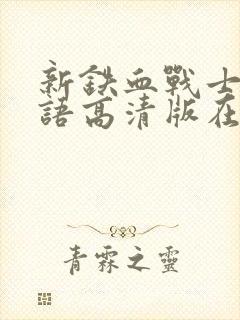 新鉄血戰士
語高清版在
青霖之靈